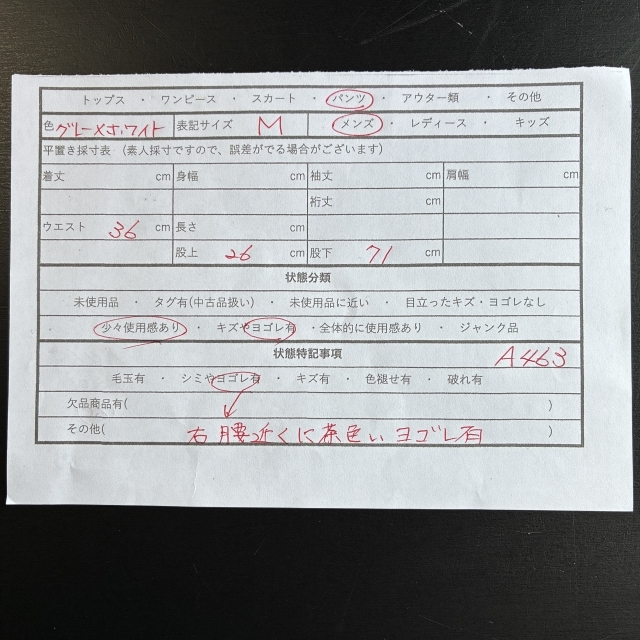 トップス ・ ワンピース ・ スカート ・ パンツ ・ アウター類 ・ その他
色 グレー×ホワイト 表記サイズ M メンズ ・ レディース ・ キッズ
平置き採寸表 (素人採寸ですので、誤差がでる場合がございます)
着丈 cm 身幅 cm 袖丈 cm 肩幅 cm
裄丈 cm
ウエスト 36 cm 長さ cm
股上 26 cm 股下 71 cm
状態分類
未使用品 ・ タグ有(中古品扱い) ・ 未使用品に近い ・ 目立ったキズ・ヨゴレなし
・ 少々使用感あり ・ キズやヨゴレ有 ・全体的に使用感あり ・ ジャンク品
状態特記事項 A463
毛玉有 ・ シミやヨゴレ有 ・ キズ有 ・ 色褪せ有 ・ 破れ有
欠品商品有( )
その他( 右腰近くに茶色いヨゴレ有 )